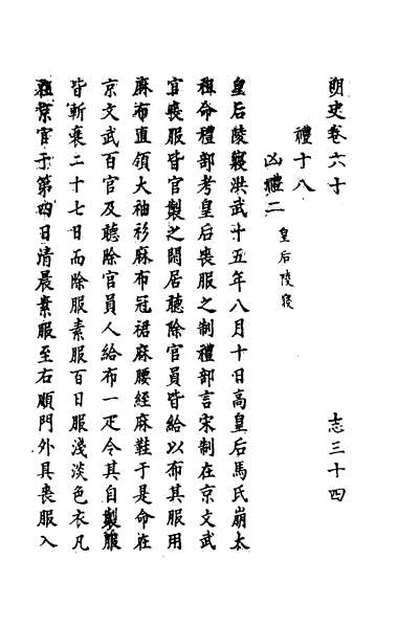 明史卷六十 志三十四
禮十八
凶禮二 皇后陵寢
皇后陵寢洪武十五年八月十日高皇后馬氏崩太
祖命禮部考皇后喪服之制禮部言宋制在京文武
官喪服皆官製之閒居聽除官員皆給以布其服用
麻布直領大袖衫麻布冠裙麻腰絰麻鞋于是命在
京文武百官及聽除官員人給布一疋令其自製服
皆斬衰二十七日而除服素服百日服淺淡色衣凡
在京官于第四日清晨素服至右順門外具喪服入